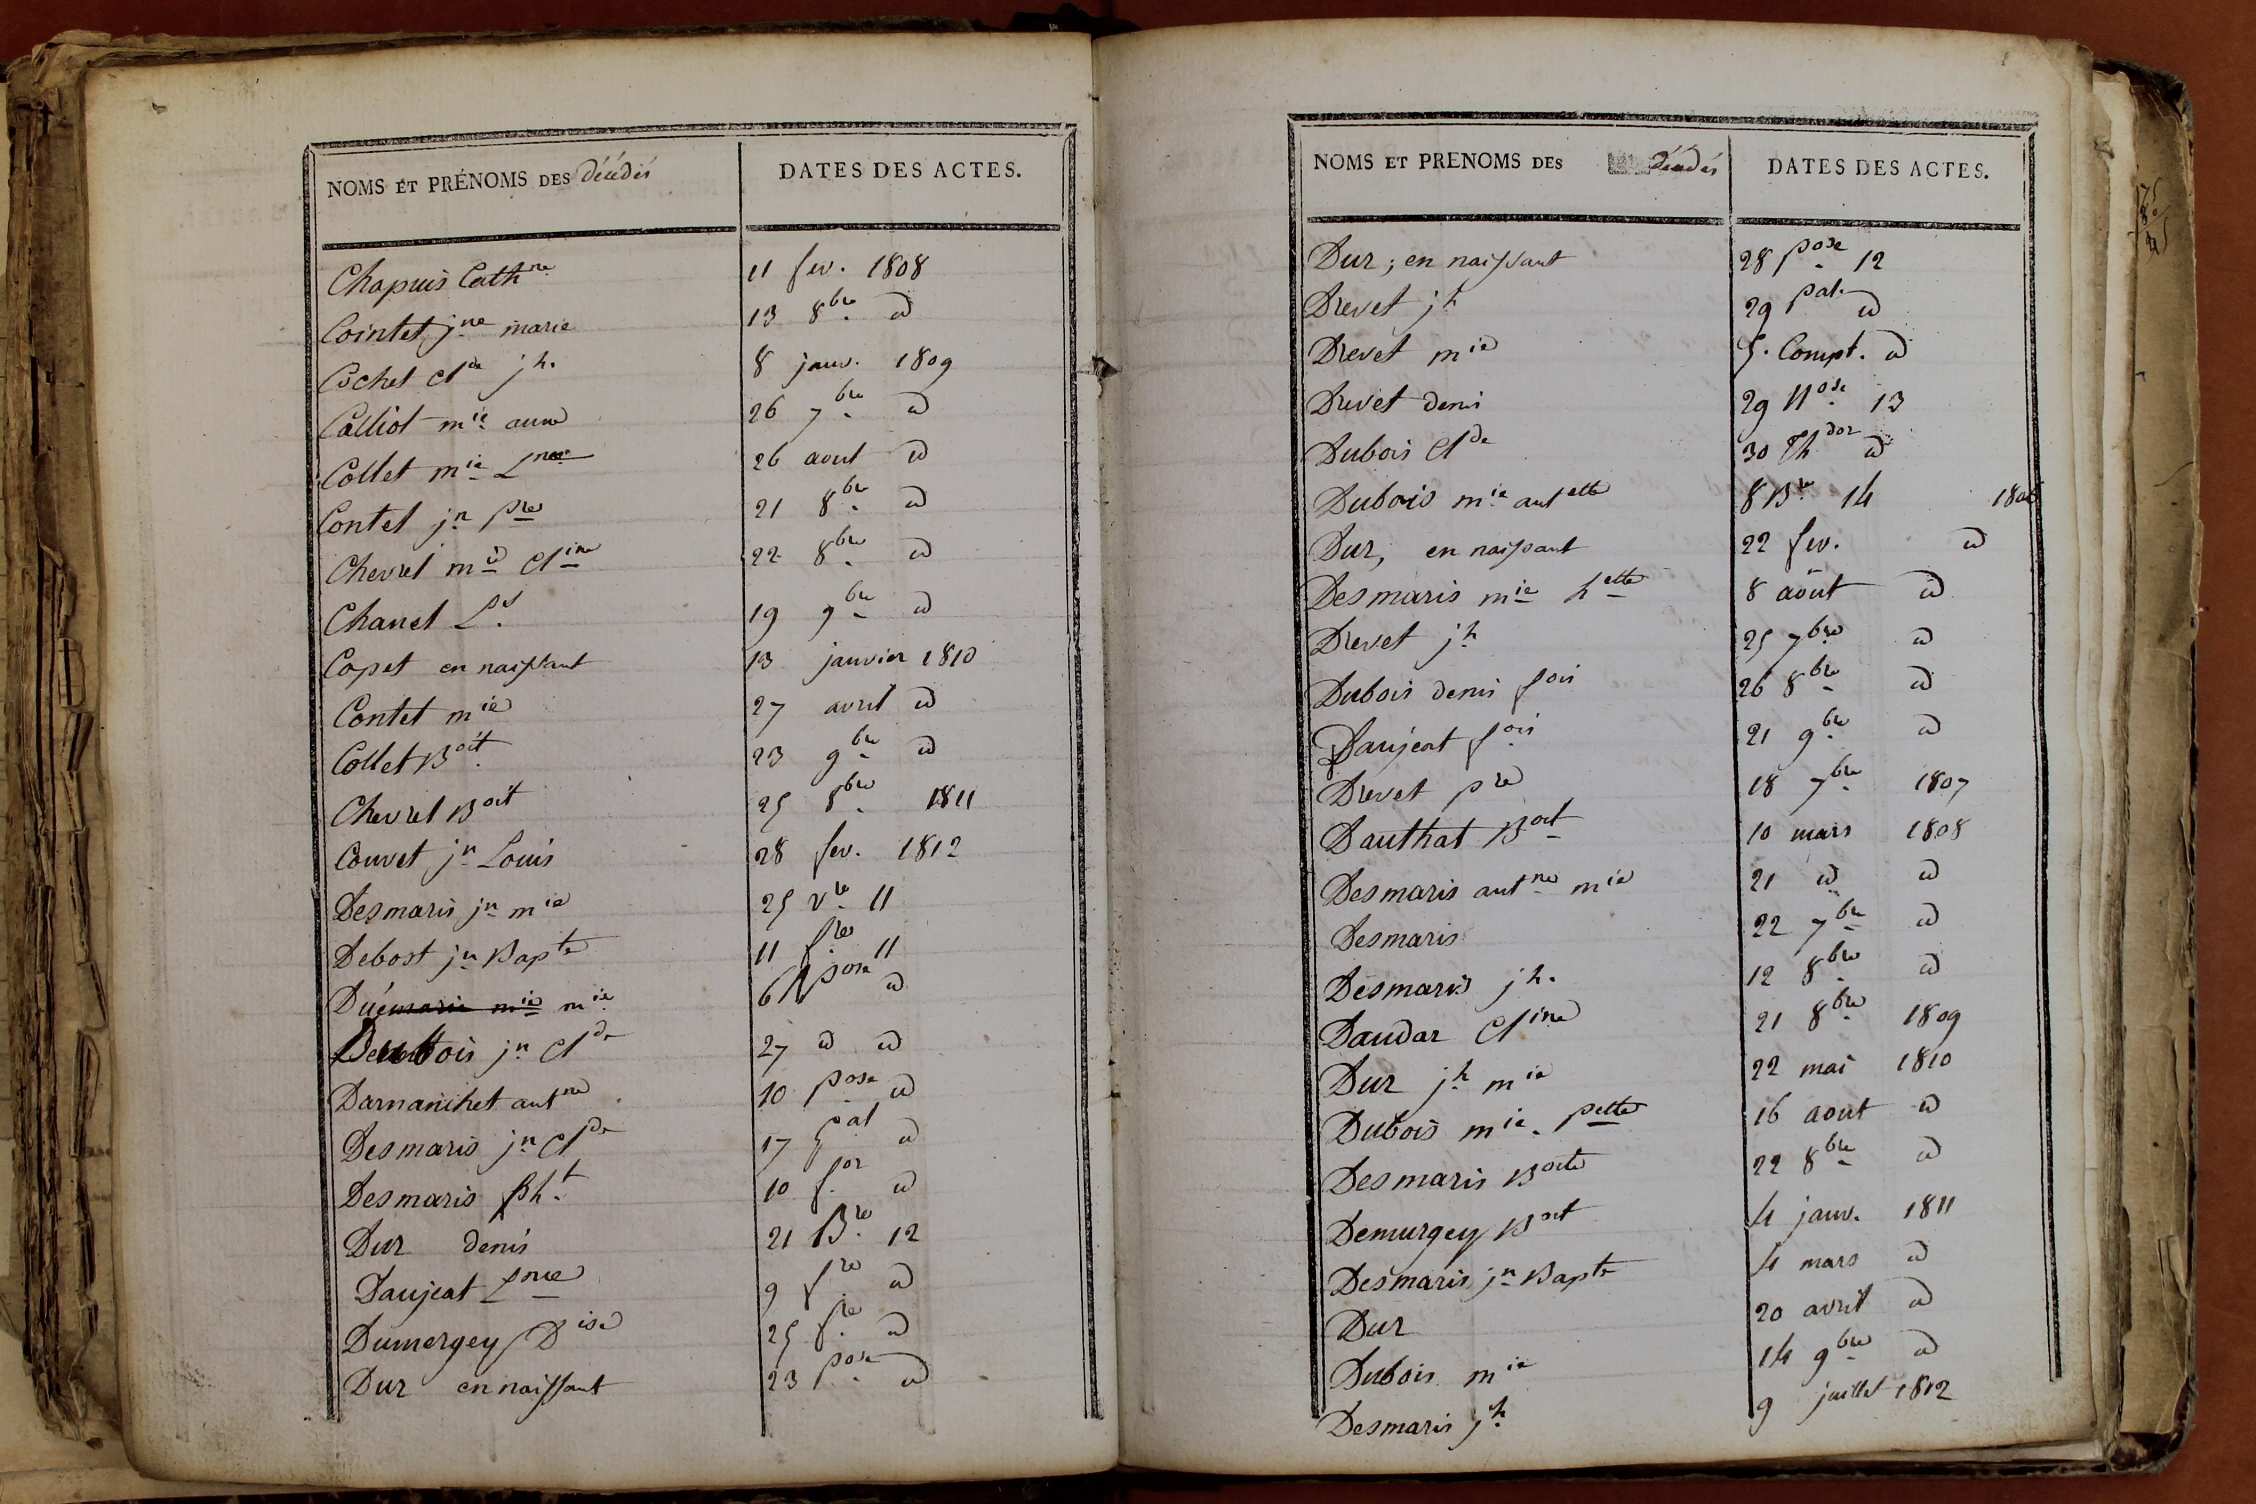 NOMS ET PRÉNOMS DES Décédés DATES DES ACTES.
Chapuis Cathne 11 fev. 1808
Cointet jne marie 13 8bre id
Cochet Clde jh. 8 janv. 1809
Calliot mie anne 26 7bre id
Collet mie Lnce 26 aout id
Contet jn pre 21 8bre id
Chevrel mie Cline 22 8bre id
Chanel Ls. 19 9bre id
Copet en naissant 13 janvier 1810
Contet mie 27 avril id
Collet Boit. 23 9bre id
Chevrel Boit 25 8bre 1811
Couvet jn Louis 28 fev. 1812
Desmaris jn mie 25 Vre 11
Debost jn Bapte 11 fre 11
Dué mie 6 pose id
Dubois jn Clde 27 id id
Darnanchet antne 10 pose id
Desmaris jn Clde 17 pal id
Desmaris pht 10 for id
Dur denis 21 Bre 12
Daujeat Lnce 9 fre id
Dumergey Dise 25 fre id
Dur en naissant 23 pose id
NOMS ET PRENOMS DES Décédés DATES DES ACTES.
Dur, en naissant 28 pose 12
Drevet jh 29 pal id
Drevet mie 5. Compt. id
Drevet denis 29 Nose 13
Dubois Clde 30 Thdor id
Dubois mie antette 8 Bre 14 1806
Dur, en naissant 22 fev. id
Desmaris mie hette 8 août id
Drevet jh 25 7bre id
Dubois denis fois 26 8bre id
Daujeat fois 21 9bre id
Drevet pre 18 7bre 1807
Dauthat Boit 10 mars 1808
Desmaris antne mie 21 id id
Desmaris 22 7bre id
Desmaris jh. 12 8bre id
Daudar Cline 21 8bre 1809
Dur jh mie 22 mai 1810
Dubois mie. pette 16 aout id
Desmaris Boite 22 8bre id
Demurgey Boit 4 janv. 1811
Desmaris jn Bapte 4 mars id
Dur 20 avril id
Dubois mie 14 9bre id
Desmaris jh 9 juillet 1812